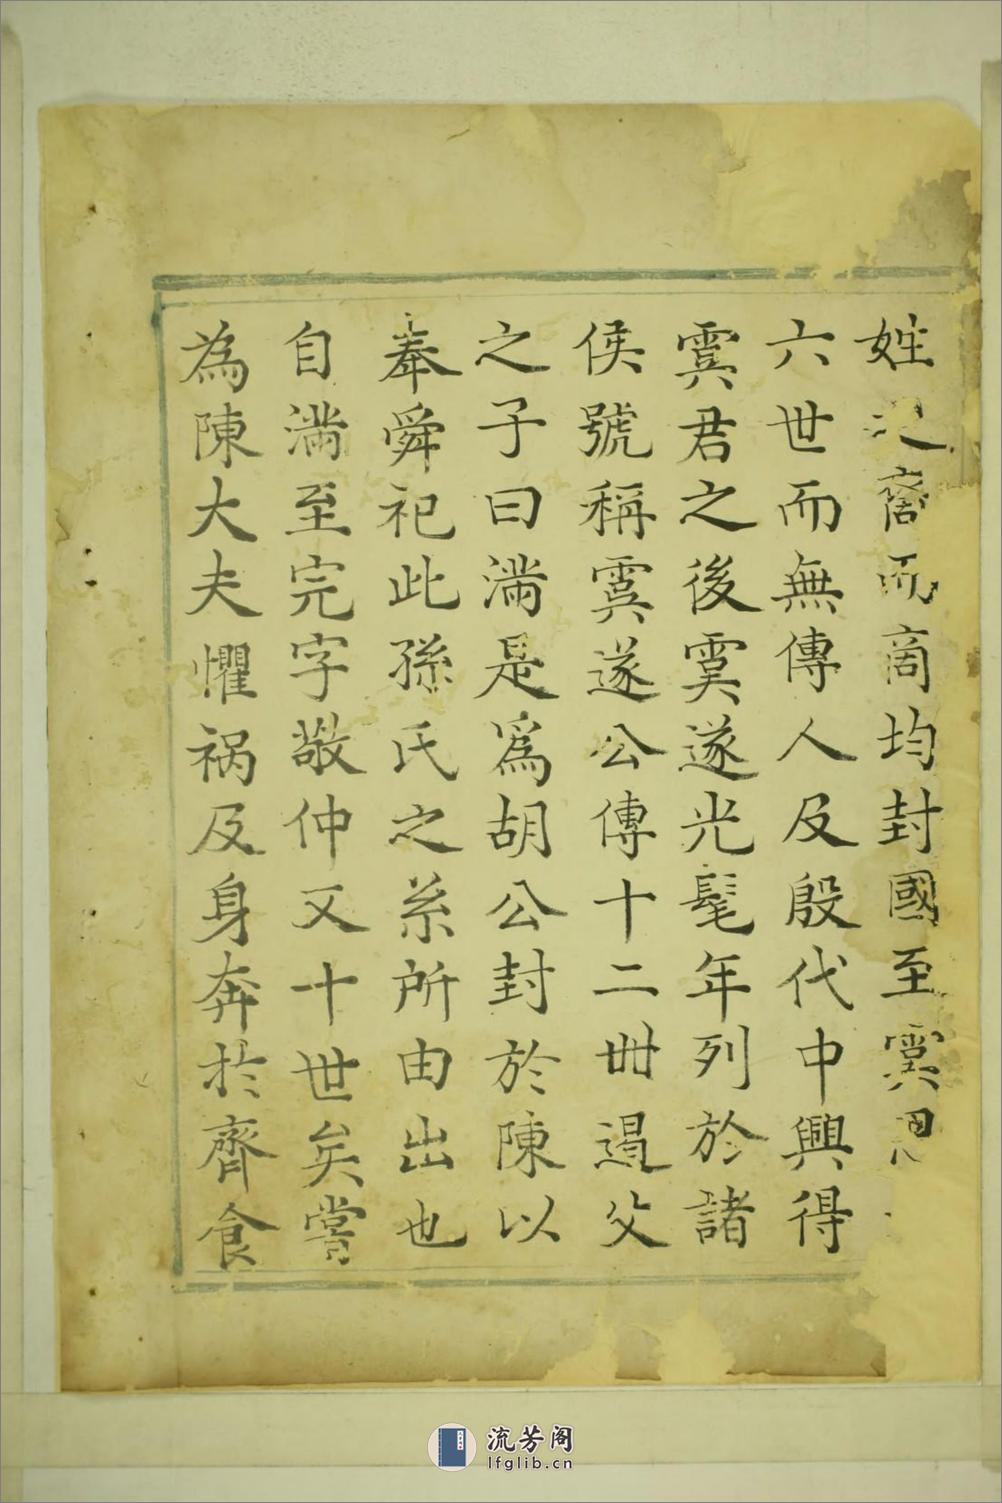 姓之裔而商均封國至虞思
六世而無傳人及殷代中興得
虞君之後虞遂光髦年列於諸
侯號稱虞遂公傳十二世遏父
之子曰滿是爲胡公封於陳以
奉舜祀此孫氏之系所由出也
自滿至完字敬仲又十世矣嘗
為陳大夫懼禍及身奔於齊食
流芳阁
lfglib.cn